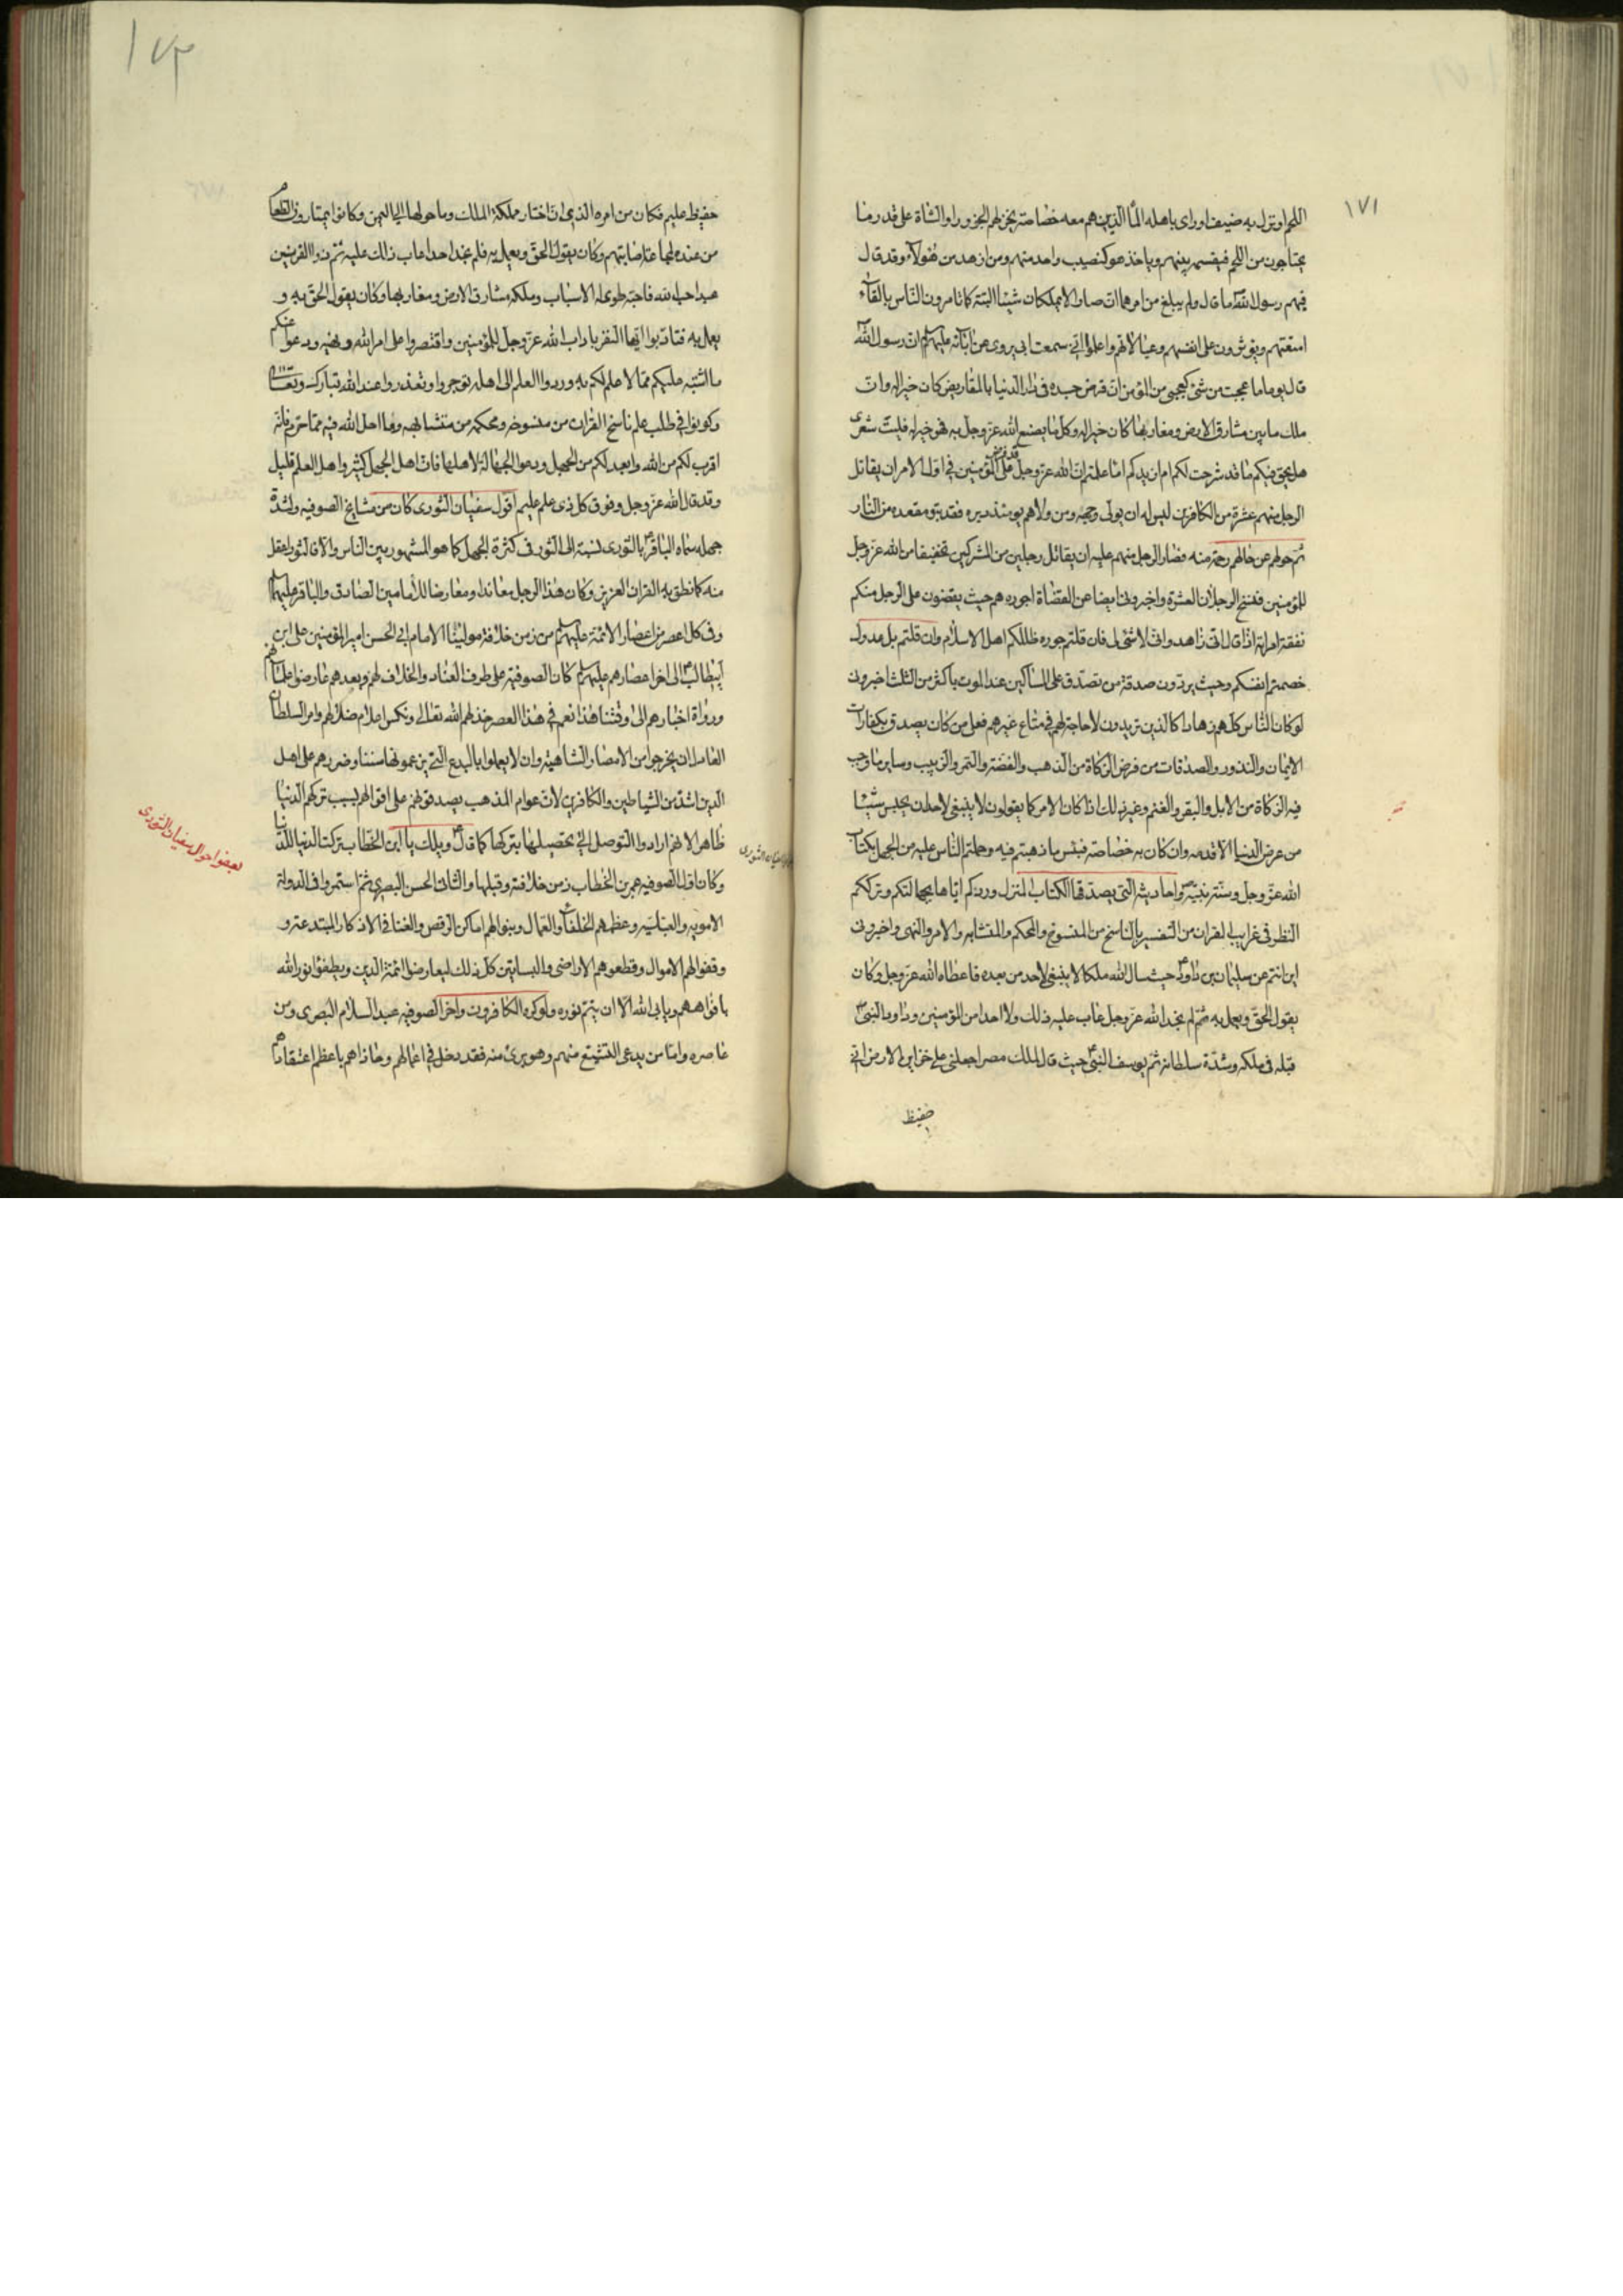 ١٧١
اللحم او نزل به ضيف او رأى باهله الماء الذين هم معه خصاصة نحر لهم الجزور او الشاة على قدر ما
يحتاجون من اللحم فيقسمه بينهم وياخذ هو كنصيب واحد منهم ومن ازهد من هؤلاء وقد قال
فيهم رسول الله ما قال ولم يبلغ من امرهما ان صارا لا يملكان شيئا البتة كما تامرون الناس بالقاء
امتعتهم ويؤثرون على انفسهم وعيالاتهم واعلموا اني سمعت ابي يروي عن آبائه عليهم ان رسول الله
قال يوما ما عجبت من شئ كعجبي من المؤمن ان قرض جسده في دار الدنيا بالمقاريض كان خيرا له وان
ملك ما بين مشارق الارض ومغاربها كان خيرا له وكل ما يصنع الله عز وجل به فهو خير له فليت شعري
هل يحق فيكم ما قد شرحت لكم ام ازيدكم اما علمتم ان الله عز وجل قد فرض على المؤمنين في اول الامر ان يقاتل
الرجل منهم عشرة من الكافرين ليس له ان يولى وجهه ومن ولاهم يومئذ دبره فقد تبوء مقعده من النار
ثم حولهم عن حالهم رحمة منه فصار الرجل منهم عليه ان يقاتل رجلين من المشركين تخفيفا من الله عز وجل
للمؤمنين فنسخ الرجلان العشرة واخبروني ايضا عن القضاة اجوره هم حيث يقضون على الرجل منكم
نفقة امراته اذا قال اني زاهد واني لا شئ لي فان قلتم جوره ظللكم اهل الاسلام وان قلتم بل عدول
خصمتم انفسكم وحيث يردون صدقة من تصدق على المساكين عند الموت باكثر من الثلث اخبروني
لو كان الناس كلهم زهادا كالذين تريدون لا حاجة لهم في متاع غيرهم فعلى من كان يصدق بكفارات
الايمان والنذور والصدقات من فرض الزكاة من الذهب والفضة والتمر والزبيب وساير ما وجب
فيه الزكاة من الابل والبقر والغنم وغير ذلك اذا كان الامر كما يقولون لا ينبغي لاحد ان يحبس شيئا
من عرض الدنيا الا قدمه وان كان به خصاصة فبئس ما ذهبتم فيه وحملتم الناس عليه من الجهل بكتاب
الله عز وجل وسنة نبيه واحاديثه التي يصدقها الكتاب المنزل وردكم اياها بجهالتكم وترككم
النظر في غرايب القران من التفسير بالناسخ من المنسوخ والمحكم والمتشابه والامر والنهي واخبروني
اين انتم عن سليمان بن داود حيث سال الله ملكا لا ينبغي لاحد من بعده فاعطاه الله عز وجل وكان
يقول الحق ويعمل به ثم لم يجد الله عز وجل عاب عليه ذلك ولا احدا من المؤمنين وداود النبي
قبله في ملكه وشدة سلطانه ثم يوسف النبي حيث قال لملك مصر اجعلني على خزاين الارض اني
حفيظ
حفيظ عليم فكان من امره الذي ان اختار مملكة الملك وما حولها الي اليمن وكانوا يمتارون الطعام
من عنده لمجاعة اصابتهم وكان يقول الحق ويعمل به فلم نجد احدا عاب ذلك عليه ثم ذوا القرنين
عبد احب الله فاحبه طوى له الاسباب وملكه مشارق الارض ومغاربها وكان يقول الحق به و
يعمل به فتادبوا ايها النفر باداب الله عز وجل للمؤمنين واقتصروا على امر الله ونهيه ودعوا عنكم
ما اشتبه عليكم مما لا علم لكم به وردوا العلم الى اهله توجروا وتعذروا عند الله تبارك وتعالى
وكونوا في طلب علم ناسخ القران من منسوخه ومحكمه من متشابهه وما احل الله فيه مما حرم فانه
اقرب لكم من الله وابعد لكم من الجهل ودعوا الجهالة لاهلها فان اهل الجهل كثير واهل العلم قليل
وقد قال الله عز وجل وفوق كل ذي علم عليم اقول سفيان الثوري كان من مشايخ الصوفيه ولشدة
جهله سماه الباقر بالثوري لنسبة الى الثور في كثرة الجهل كما هو المشهور بين الناس والا فالثور اعقل
منه كما نطق به القران العزيز وكان هذا الرجل معاندا ومعارضا للامامين الصادق والباقر عليهما
وفي كل اعصر من اعصار الائمة عليهم من زمن خلافة مولينا الامام ابي الحسن امير المؤمنين على ابن
ابيطالب الى اخر اعصارهم عليهم كان الصوفية على طرف العناد والخلاف لهم وبعدهم عارضوا علمائهم
ورواة اخبارهم الى وقتنا هذا نعم في هذا العصر خذلهم الله تعالى ونكس اعلام ضلالهم وامر السلطان
العادل ان يخرجوا من الامصار الشاهية وان لا يعملوا بالبدع التي يزعمونها سننا وضررهم على اهل
الدين اشد من الشياطين والكافرين لان عوام المذهب يصدقونهم على اقوالهم بسبب تركهم الدنيا
ظاهرا لانهم ارادوا التوصل الي تحصيلها بتركها كما قال ويلك يا ابن الخطاب تركت الدنيا للدنيا
وكان اول الصوفيه عمر بن الخطاب زمن خلافته وقبلها والثاني الحسن البصري ثم استمروا في الدولة
الامويه والعباسيه وعظمهم الخلفاء والعمال وبنوا لهم اماكن الرقص والغنا في الاذكار المبتدعة و
وقفوا لهم الاموال وقطعوهم الاراضى والبساتين كل ذلك ليعارضوا ائمة الدين ويطفؤا نور الله
بافواههم ويابى الله الا ان يتم نوره ولو كره الكافرون واخر الصوفيه عبد السلام البصرى ومن
عاصره واما من يدعي التشيع منهم وهو برئ منه فقد دخل في اعمالهم وحاذاهم باعظم اعتقاداتهم
بعض احوال سفيان الثوري
سفيان الثوري